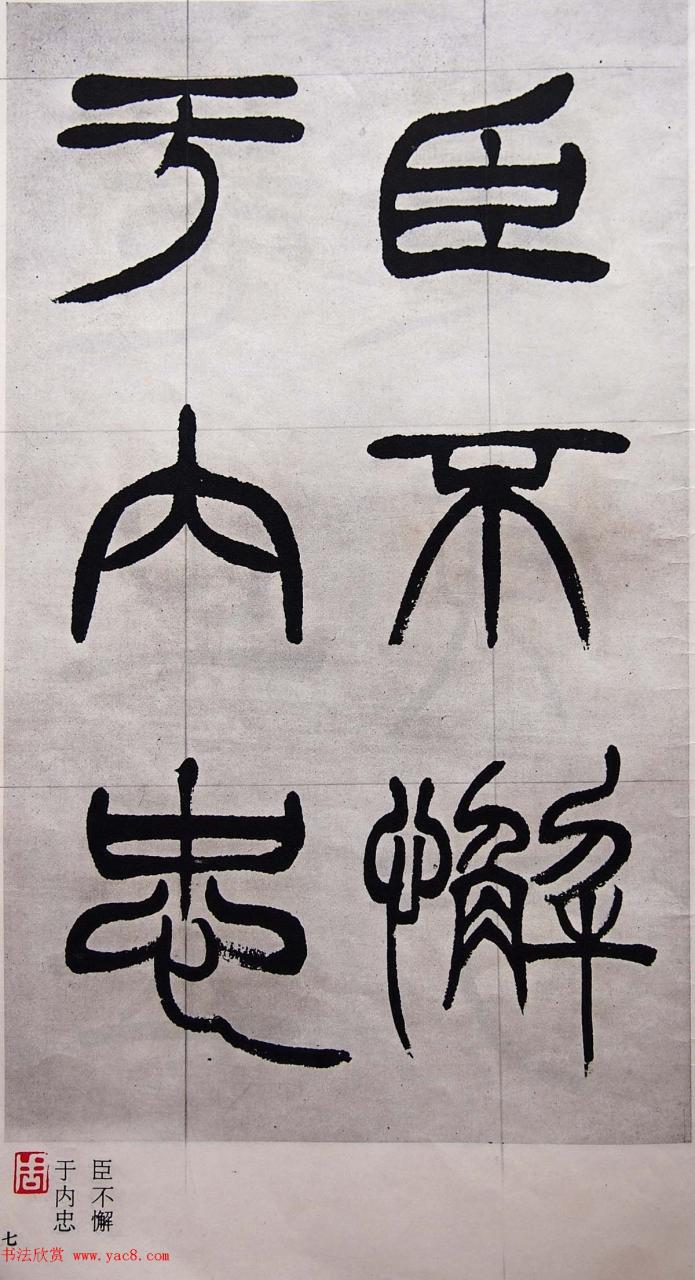 臣不懈
于内忠
臣不懈
于内忠
七
书法欣赏 www.yac8.com